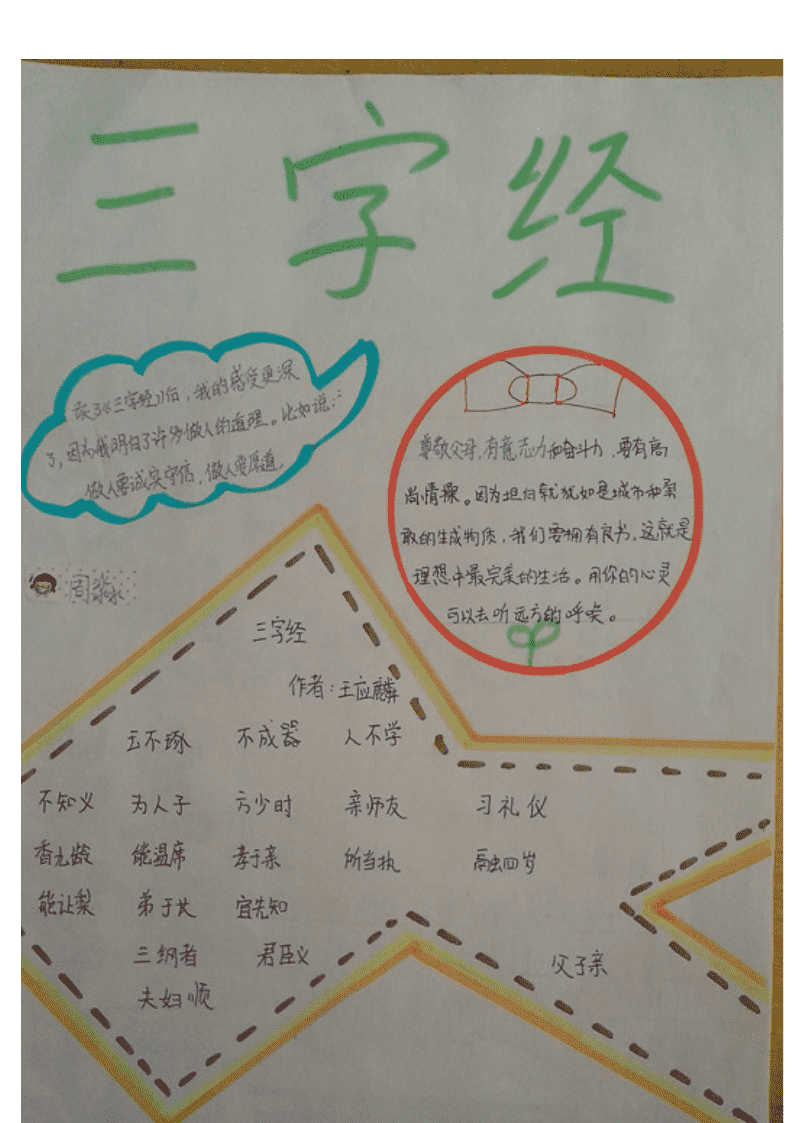 三字经
读了《三字经》后，我的感受更深
了，因为我明白了许多做人的道理。比如说：
做人要诚实守信，做人要厚道，
尊敬父母，有意志力和奋斗力，要有高
尚情操。因为坦白就犹如是城市和果
敢的生成物质，我们要拥有良书，这就是
理想中最完美的生活。用你的心灵
可以去听远方的呼唤。
周淼
三字经
作者：王应麟
玉不琢 不成器 人不学
不知义 为人子 方少时 亲师友 习礼仪
香九龄 能温席 孝于亲 所当执 融四岁
能让梨 弟于长 宜先知
三纲者 君臣义 父子亲
夫妇顺